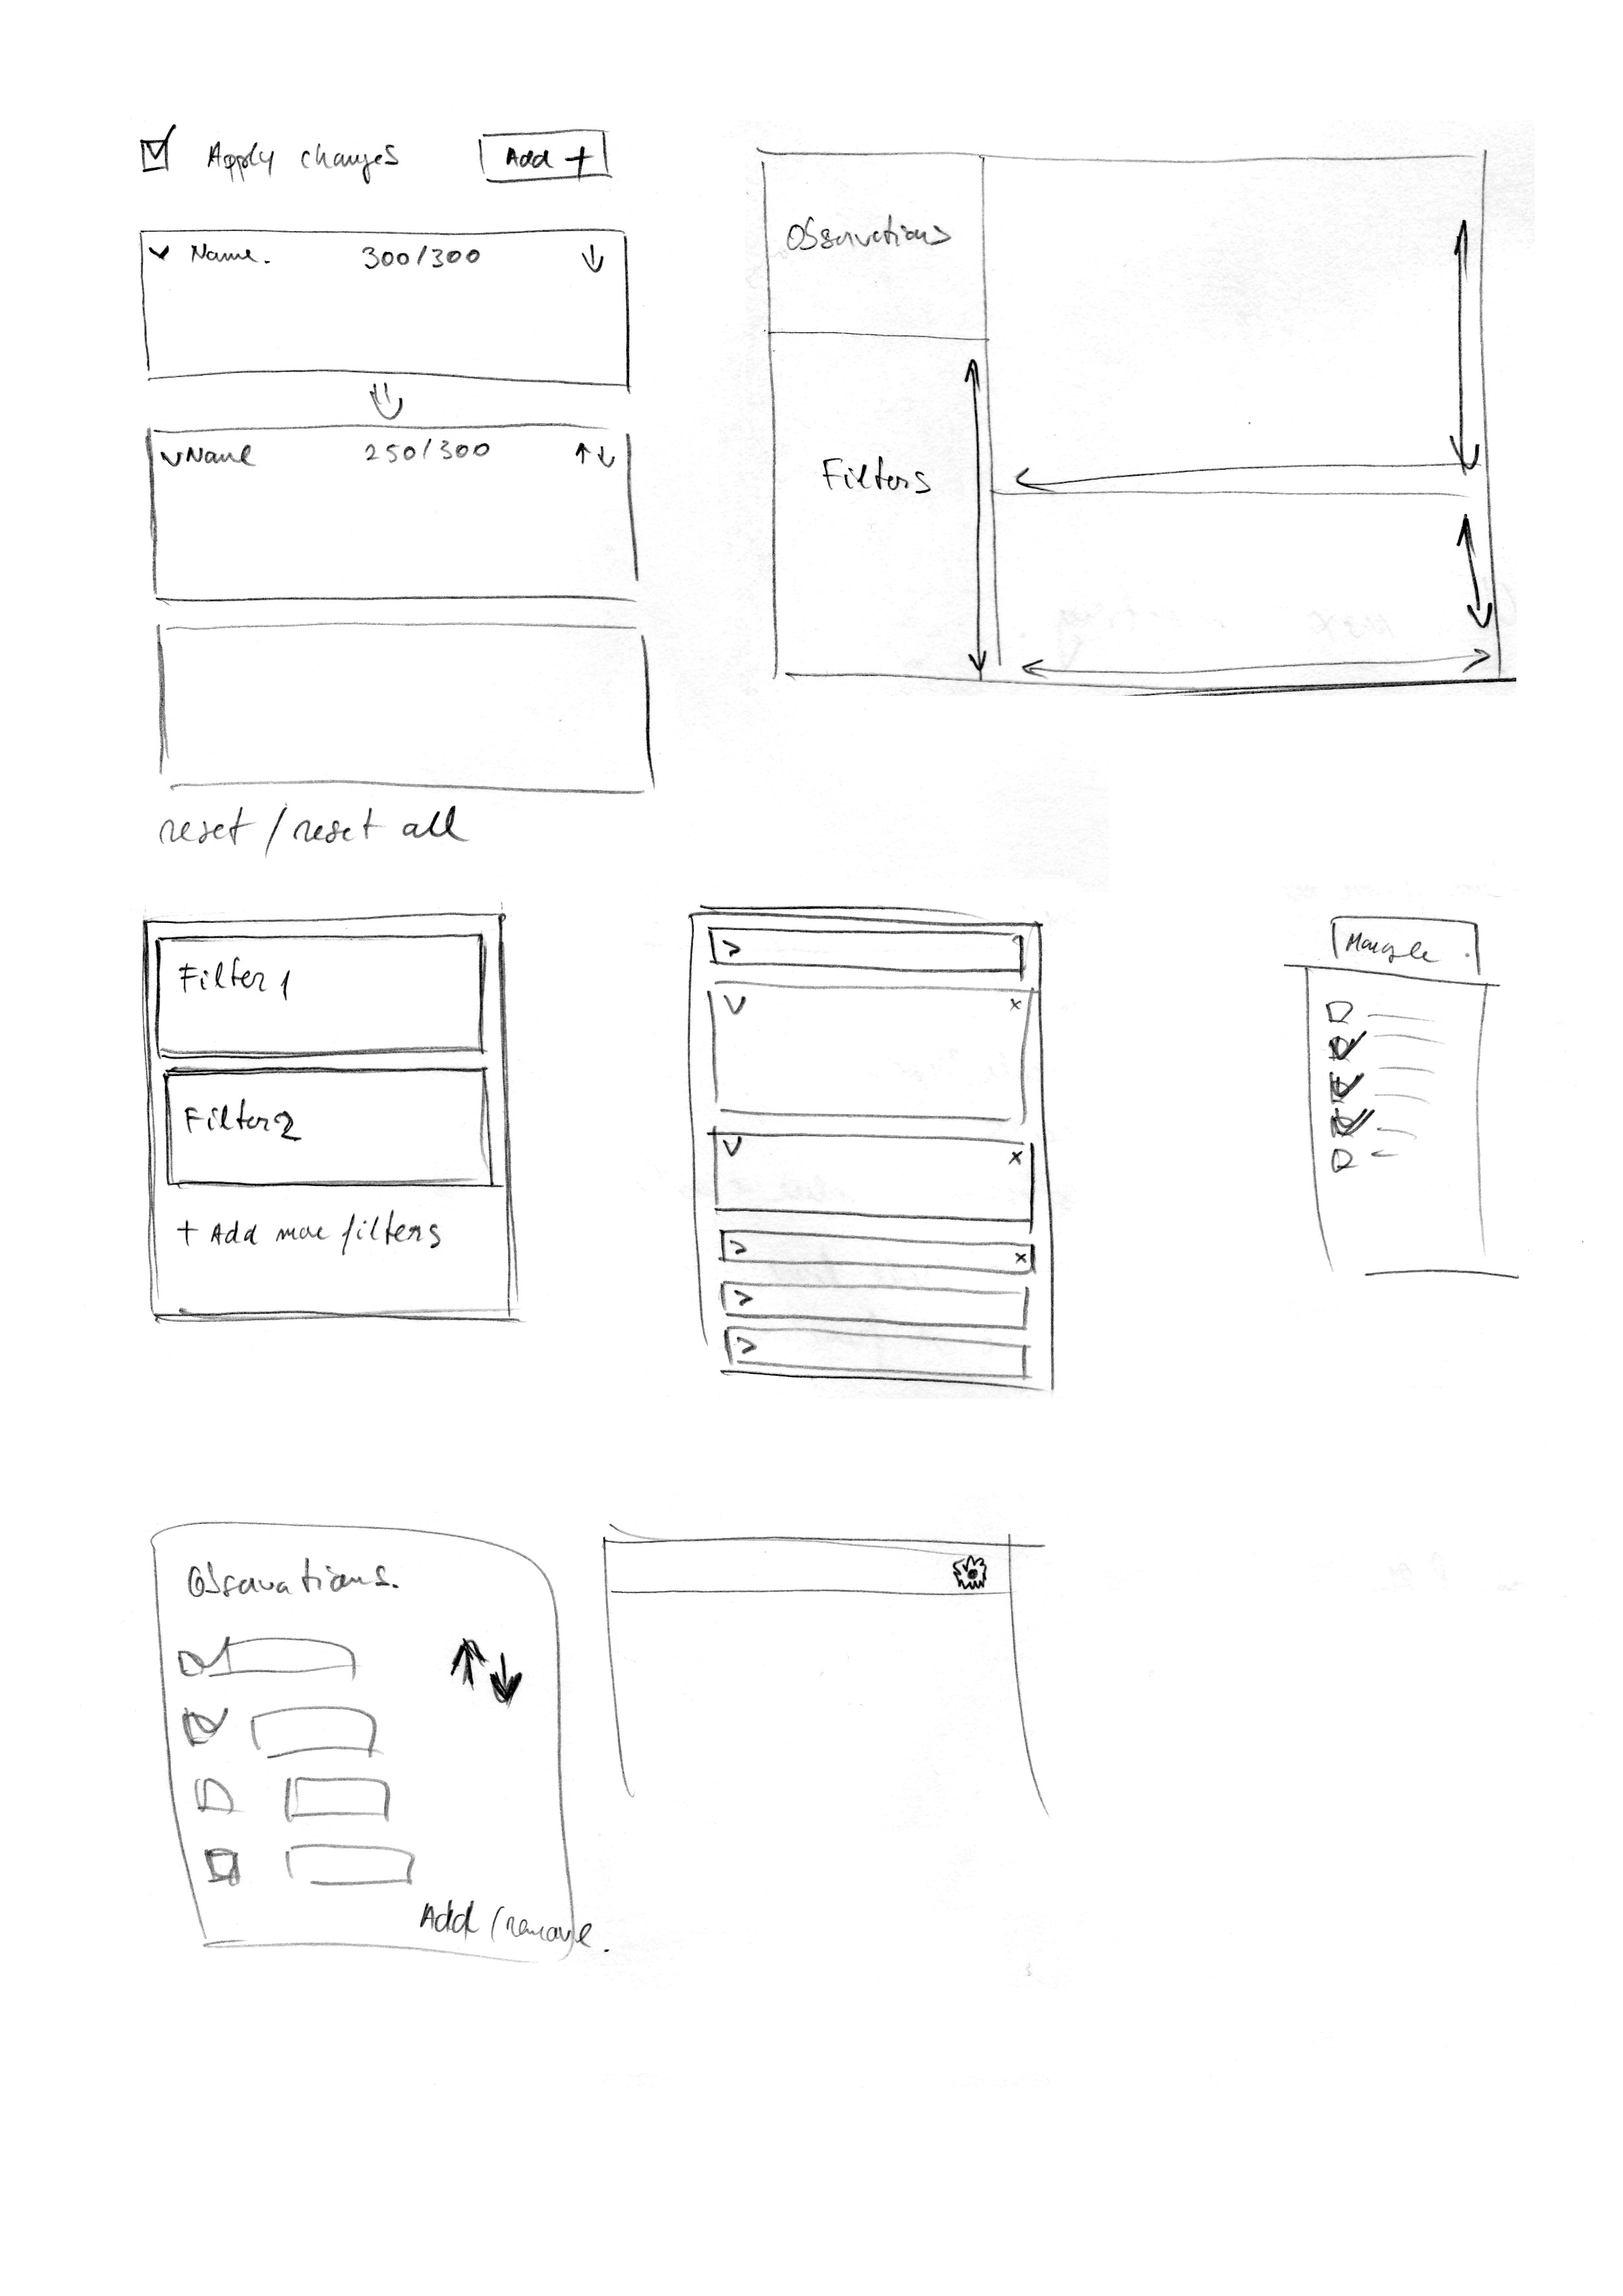 Apply changes
Add +
Name.
300/300
Name
250/300
reset / reset all
Observations
Filters
Filter 1
Filter 2
+ Add more filters
Observations.
Add / remove.